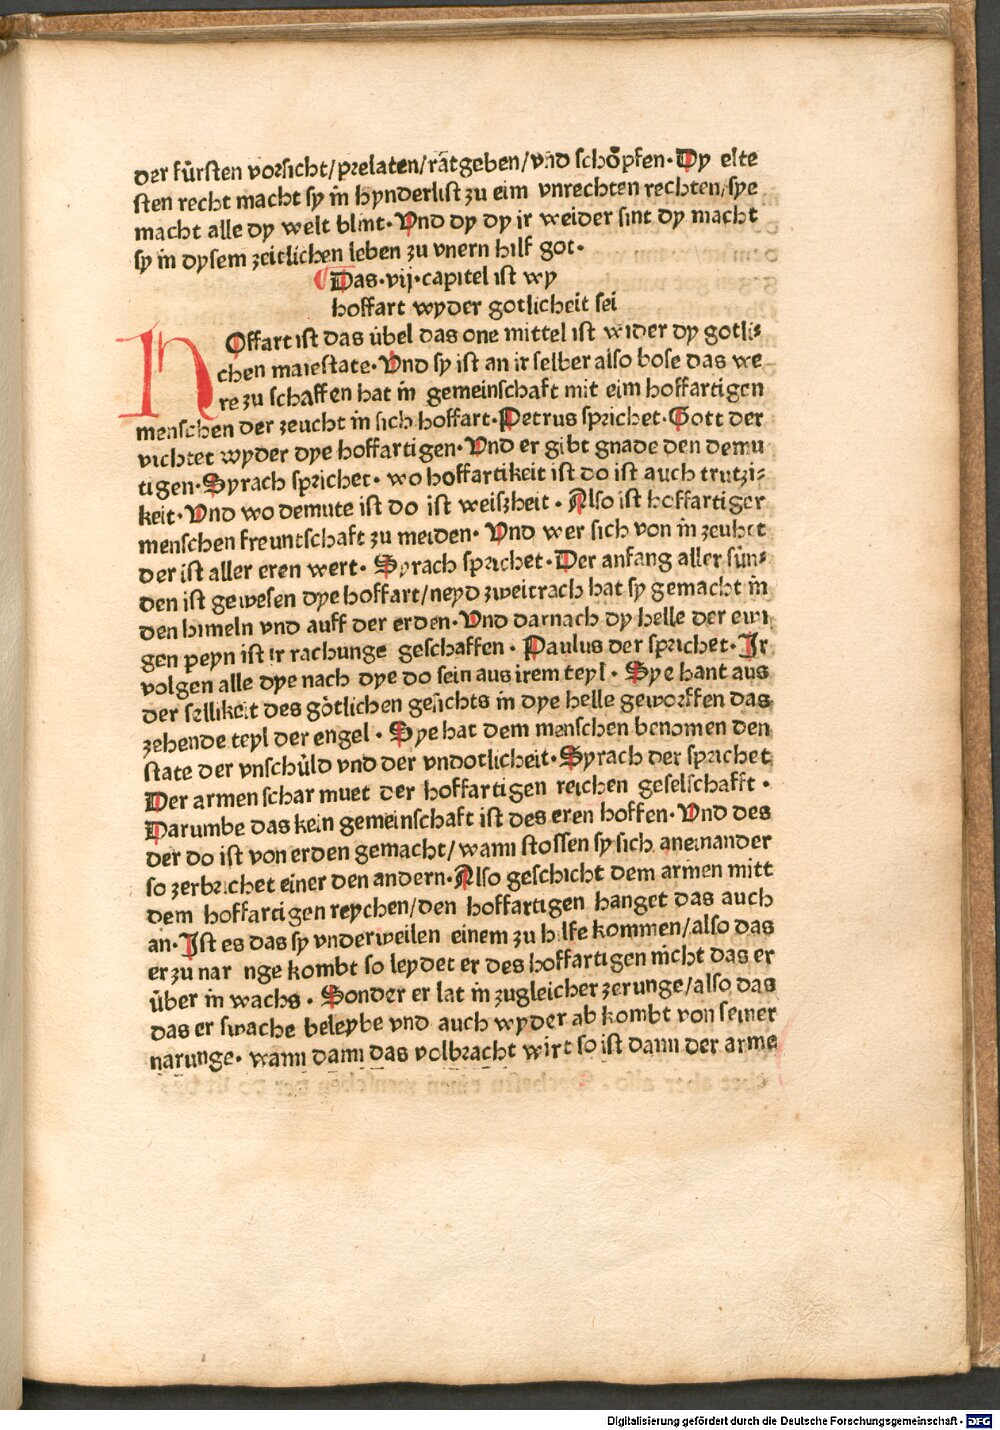 der fürsten vorsicht/prelaten/râtgeben/vnd schôpfen· Dy elte
sten recht macht sy in hynderlist zu eim vnrechten rechten/sye
macht alle dy welt blint· Vnd dy dy ir weider sint dy macht
sy in dysem zeitlichen leben zu vnern hilf got·
Das·vij·capitel ist wy
hoffart wyder gotlicheit sei
HOffart ist das übel das one mittel ist wider dy gotli⸗
chen maiestate· Vnd sy ist an ir selber also bose das we
re zu schaffen hat in gemeinschaft mit eim hoffartigen
menschen der zeucht in sich hoffart· Petrus sprichet· Gott der
vichtet wyder dye hoffartigen· Vnd er gibt gnade den demu
tigen· Syrach sprichet· wo hoffartikeit ist do ist auch trutzi⸗
keit· Vnd wo demute ist do ist weiszheit· Also ist hoffartiger
menschen freuntschaft zu meiden· Vnd wer sich von in zeuhet
der ist aller eren wert· Syrach sprichet· Der anfang aller sün⸗
den ist gewesen dye hoffart/neyd zweitrach hat sy gemacht in
den himeln vnd auff der erden· Vnd darnach dy helle der ewi
gen peyn ist ir rachunge geschaffen· Paulus der sprichet· Ir
volgen alle dye nach dye do sein aus irem teyl· Sye hant aus
der sellikeit des gôtlichen gesichts in dye helle geworffen das
zehende teyl der engel· Sye hat dem menschen benomen den
state der vnschüld vnd der vndotlicheit· Syrach der sprichet
Der armen schar muet der hoffartigen reichen geselschafft·
Darumbe das kein gemeinschaft ist des eren hoffen· Vnd des
der do ist von erden gemacht/wann stossen sy sich aneinander
so zerbrichet einer den andern· Also geschicht dem armen mitt
dem hoffartigen reychen/den hoffartigen hanget das auch
an· Ist es das sy vnderweilen einem zu hilfe kommen/also das
er zu nar nge kombt so leydet er des hoffartigen nicht das er
über in wachs· Sonder er lat in zugleicher zerunge/also das
das er swache beleybe vnd auch wyder ab kombt von seiner
narunge· wann dann das volbracht wirt so ist dann der arme
Digitalisierung gefördert durch die Deutsche Forschungsgemeinschaft - DFG